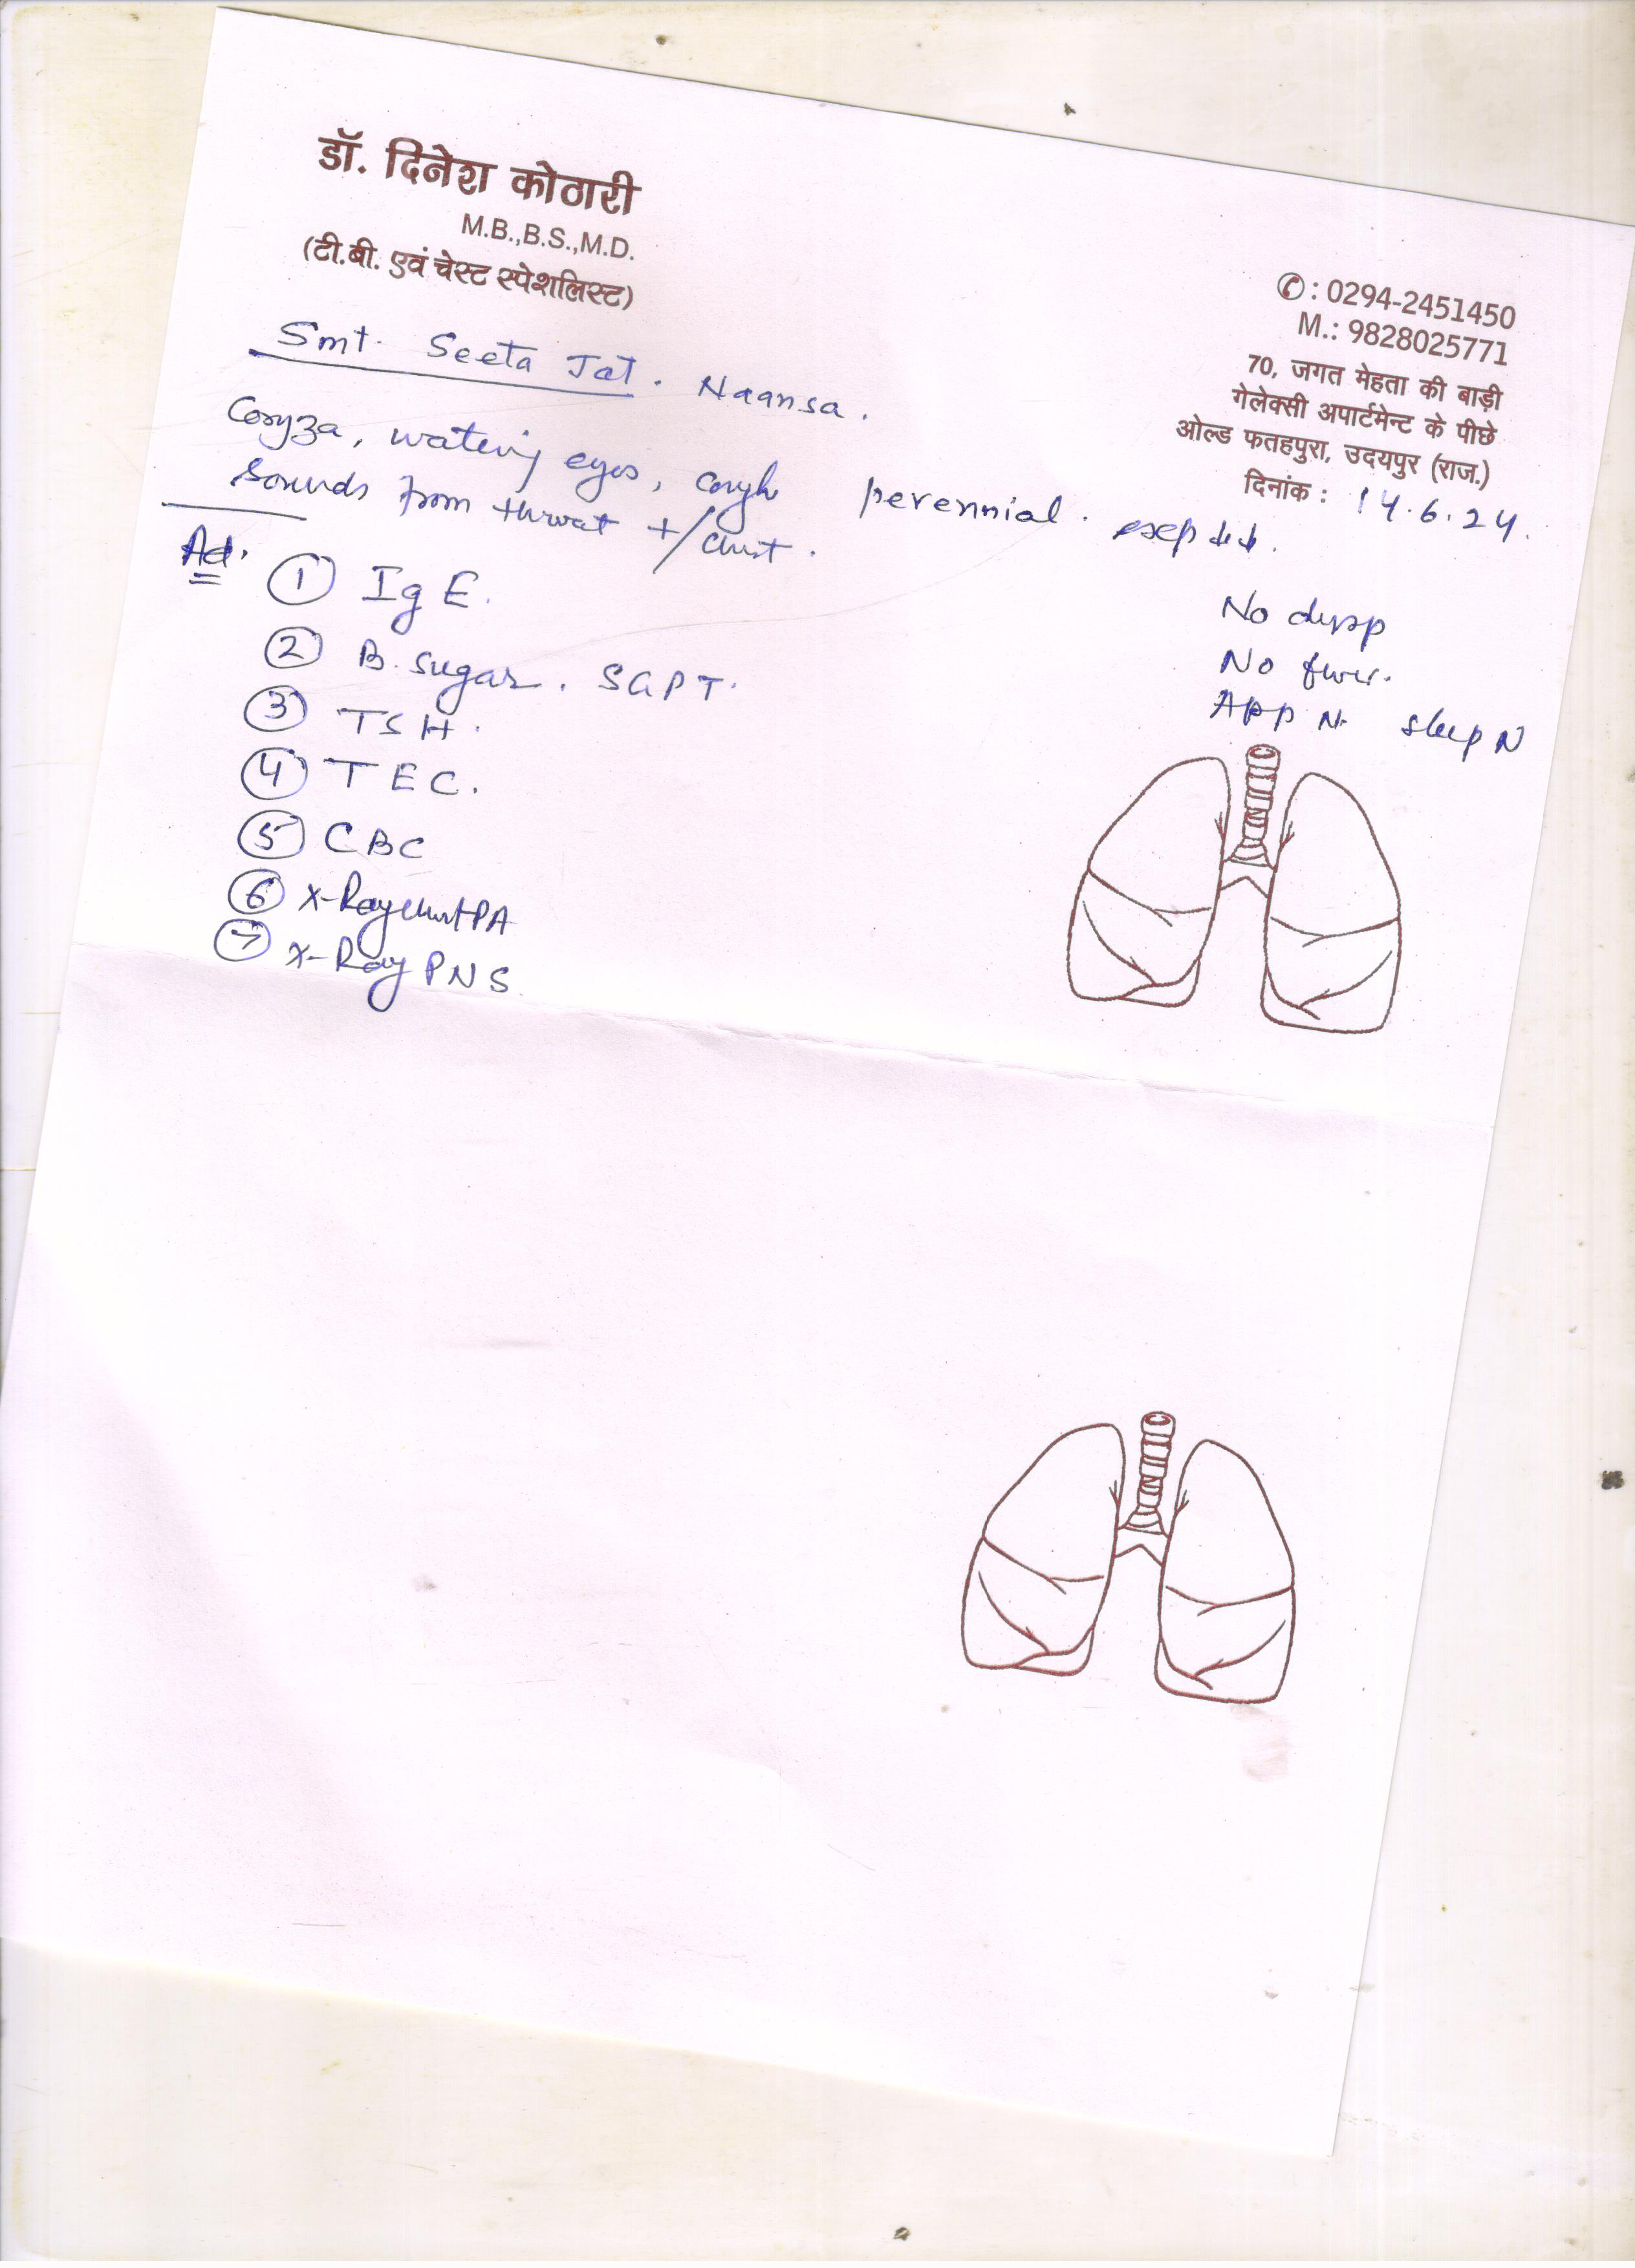 डॉ. दिनेश कोठारी
M.B.,B.S.,M.D.
(टी.बी. एवं चेस्ट स्पेशलिस्ट)
✆ : 0294-2451450
M.: 9828025771
70, जगत मेहता की बाड़ी
गेलेक्सी अपार्टमेन्ट के पीछे
ओल्ड फतहपुरा, उदयपुर (राज.)
दिनांक : 14.6.24.
Smt. Seeta Jat. Naansa.
Coryza, watering eyes, cough perennial.
sounds from throat +/chest.
No dysp
No fever.
App N sleep N
Ad.
① IgE.
② B. sugar. SGPT.
③ TSH.
④ TEC.
⑤ CBC
⑥ X-Ray chest PA
⑦ X-Ray PNS.